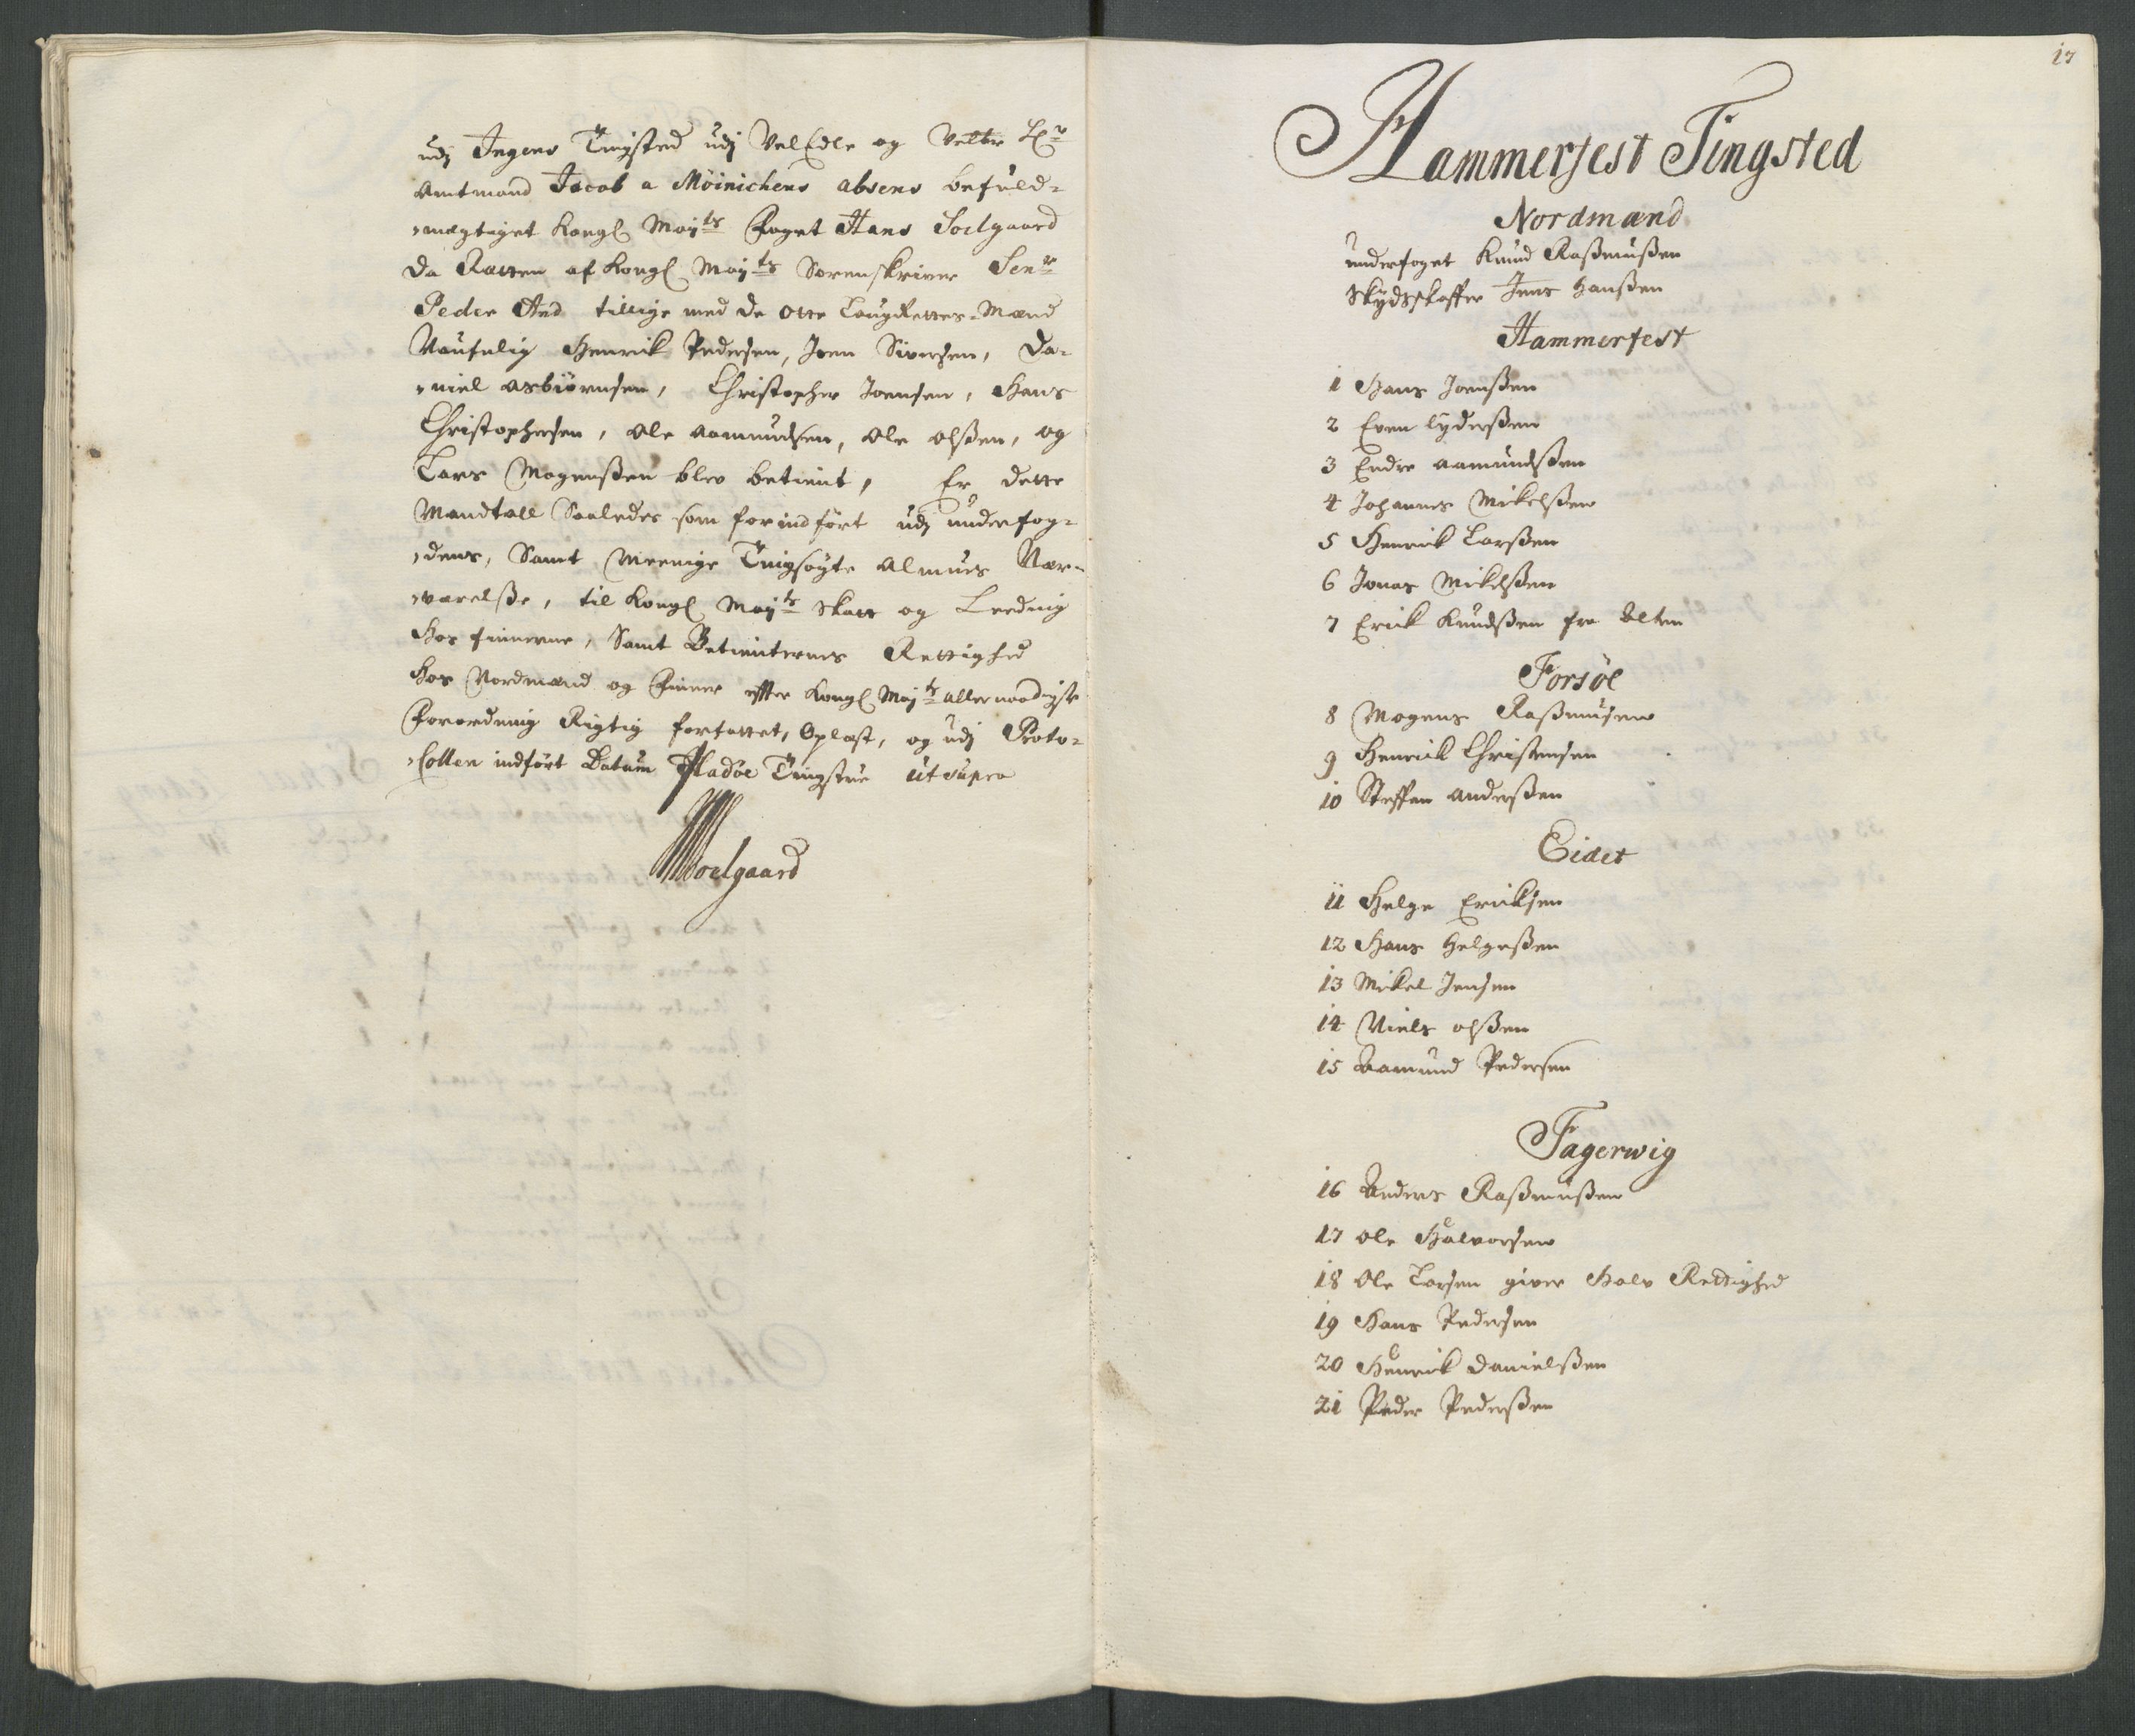 udj Ingens Tingsted udj VelEdle og Velbr Hr
Amtmand Jacob a Möinichens absens befuld=
mægtiget Kongl Mayts Foget Hans Soelgaard
da Retten af Kongl Mayts Sorenskriver Senr
Peder And tillige med de otte LaugRettes-Mænd
Naufnlig Henrik Pedersen, Joen Siversen, Da=
niel Asbiörnsen, Christopher Joensen, Hans
Christophersen, Ole Aamundsen, Ole Olßen, og
Lars Mogenßen blev betient, Er dette
Mandtall Saaledes som forindfört udj underfog=
dens, Samt Meenige Tingsøgte Almues Nær=
værelße, til Kongl Mayts Skatt og Leeding
Hos finnerne, Samt Betienternes Rettighed
Hos Nordmænd og Finner effter Kongl Mayts allernaadigste
Forordning Rigtig forfattet, Oplæst, og udj Proto=
Collen indfört Datum Tingstue ut supra
Soelgaard
17
Hammerfest Tingsted
Nordmænd
underfoget Knud Raßmußen
Skydsskaffer Jens Hanßen
Hammerfest
1 Hans Joenßen
2 Even Lyderßen
3 Endre Aamundßen
4 Johannes Mikelßen
5 Henrik Larßen
6 Jonas Mikelßen
7 Erick Knudßen fra Alten
Forsöe
8 Mogens Raßmusen
9 Henrick Christensen
10 Steffen Anderßen
Eidet
11 Helge Ericksen
12 Hans Helgeßen
13 Mikel Jensen
14 Niels Olßen
15 Aamund Pedersen
Fagerwig
16 Anders Raßmußen
17 Ole Halvorsen
18 Ole Larsen giver Halv Rettighed
19 Hans Pedersen
20 Henrik Danielßen
21 Peder Pederßen